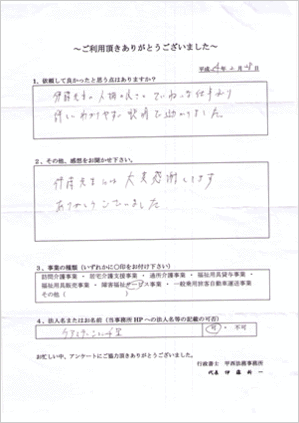 ～ご利用頂きありがとうございました～
平成24年 月 日
1、依頼して良かったと思う点はありますか？
伊藤先生の人物の良さと ていねいな仕事ぶり
詳しい わかりやすい 説明で助かりました。
2、その他、感想をお聞かせ下さい。
伊藤先生には 大変感謝してます
ありがとうございました
3、事業の種類（いずれかに○印をお付け下さい）
訪問介護事業 ・ 居宅介護支援事業 ・ 通所介護事業 ・ 福祉用具貸与事業 ・
福祉用具販売事業 ・ 障害福祉サービス事業 ・ 一般乗用旅客自動車運送事業
その他（ ）
4、法人名またはお名前（当事務所HPへの法人名等の記載の可否）
可 ・ 不可
お忙しい中、アンケートにご協力頂きありがとうございました。
行政書士 甲西法務事務所
代表 伊藤